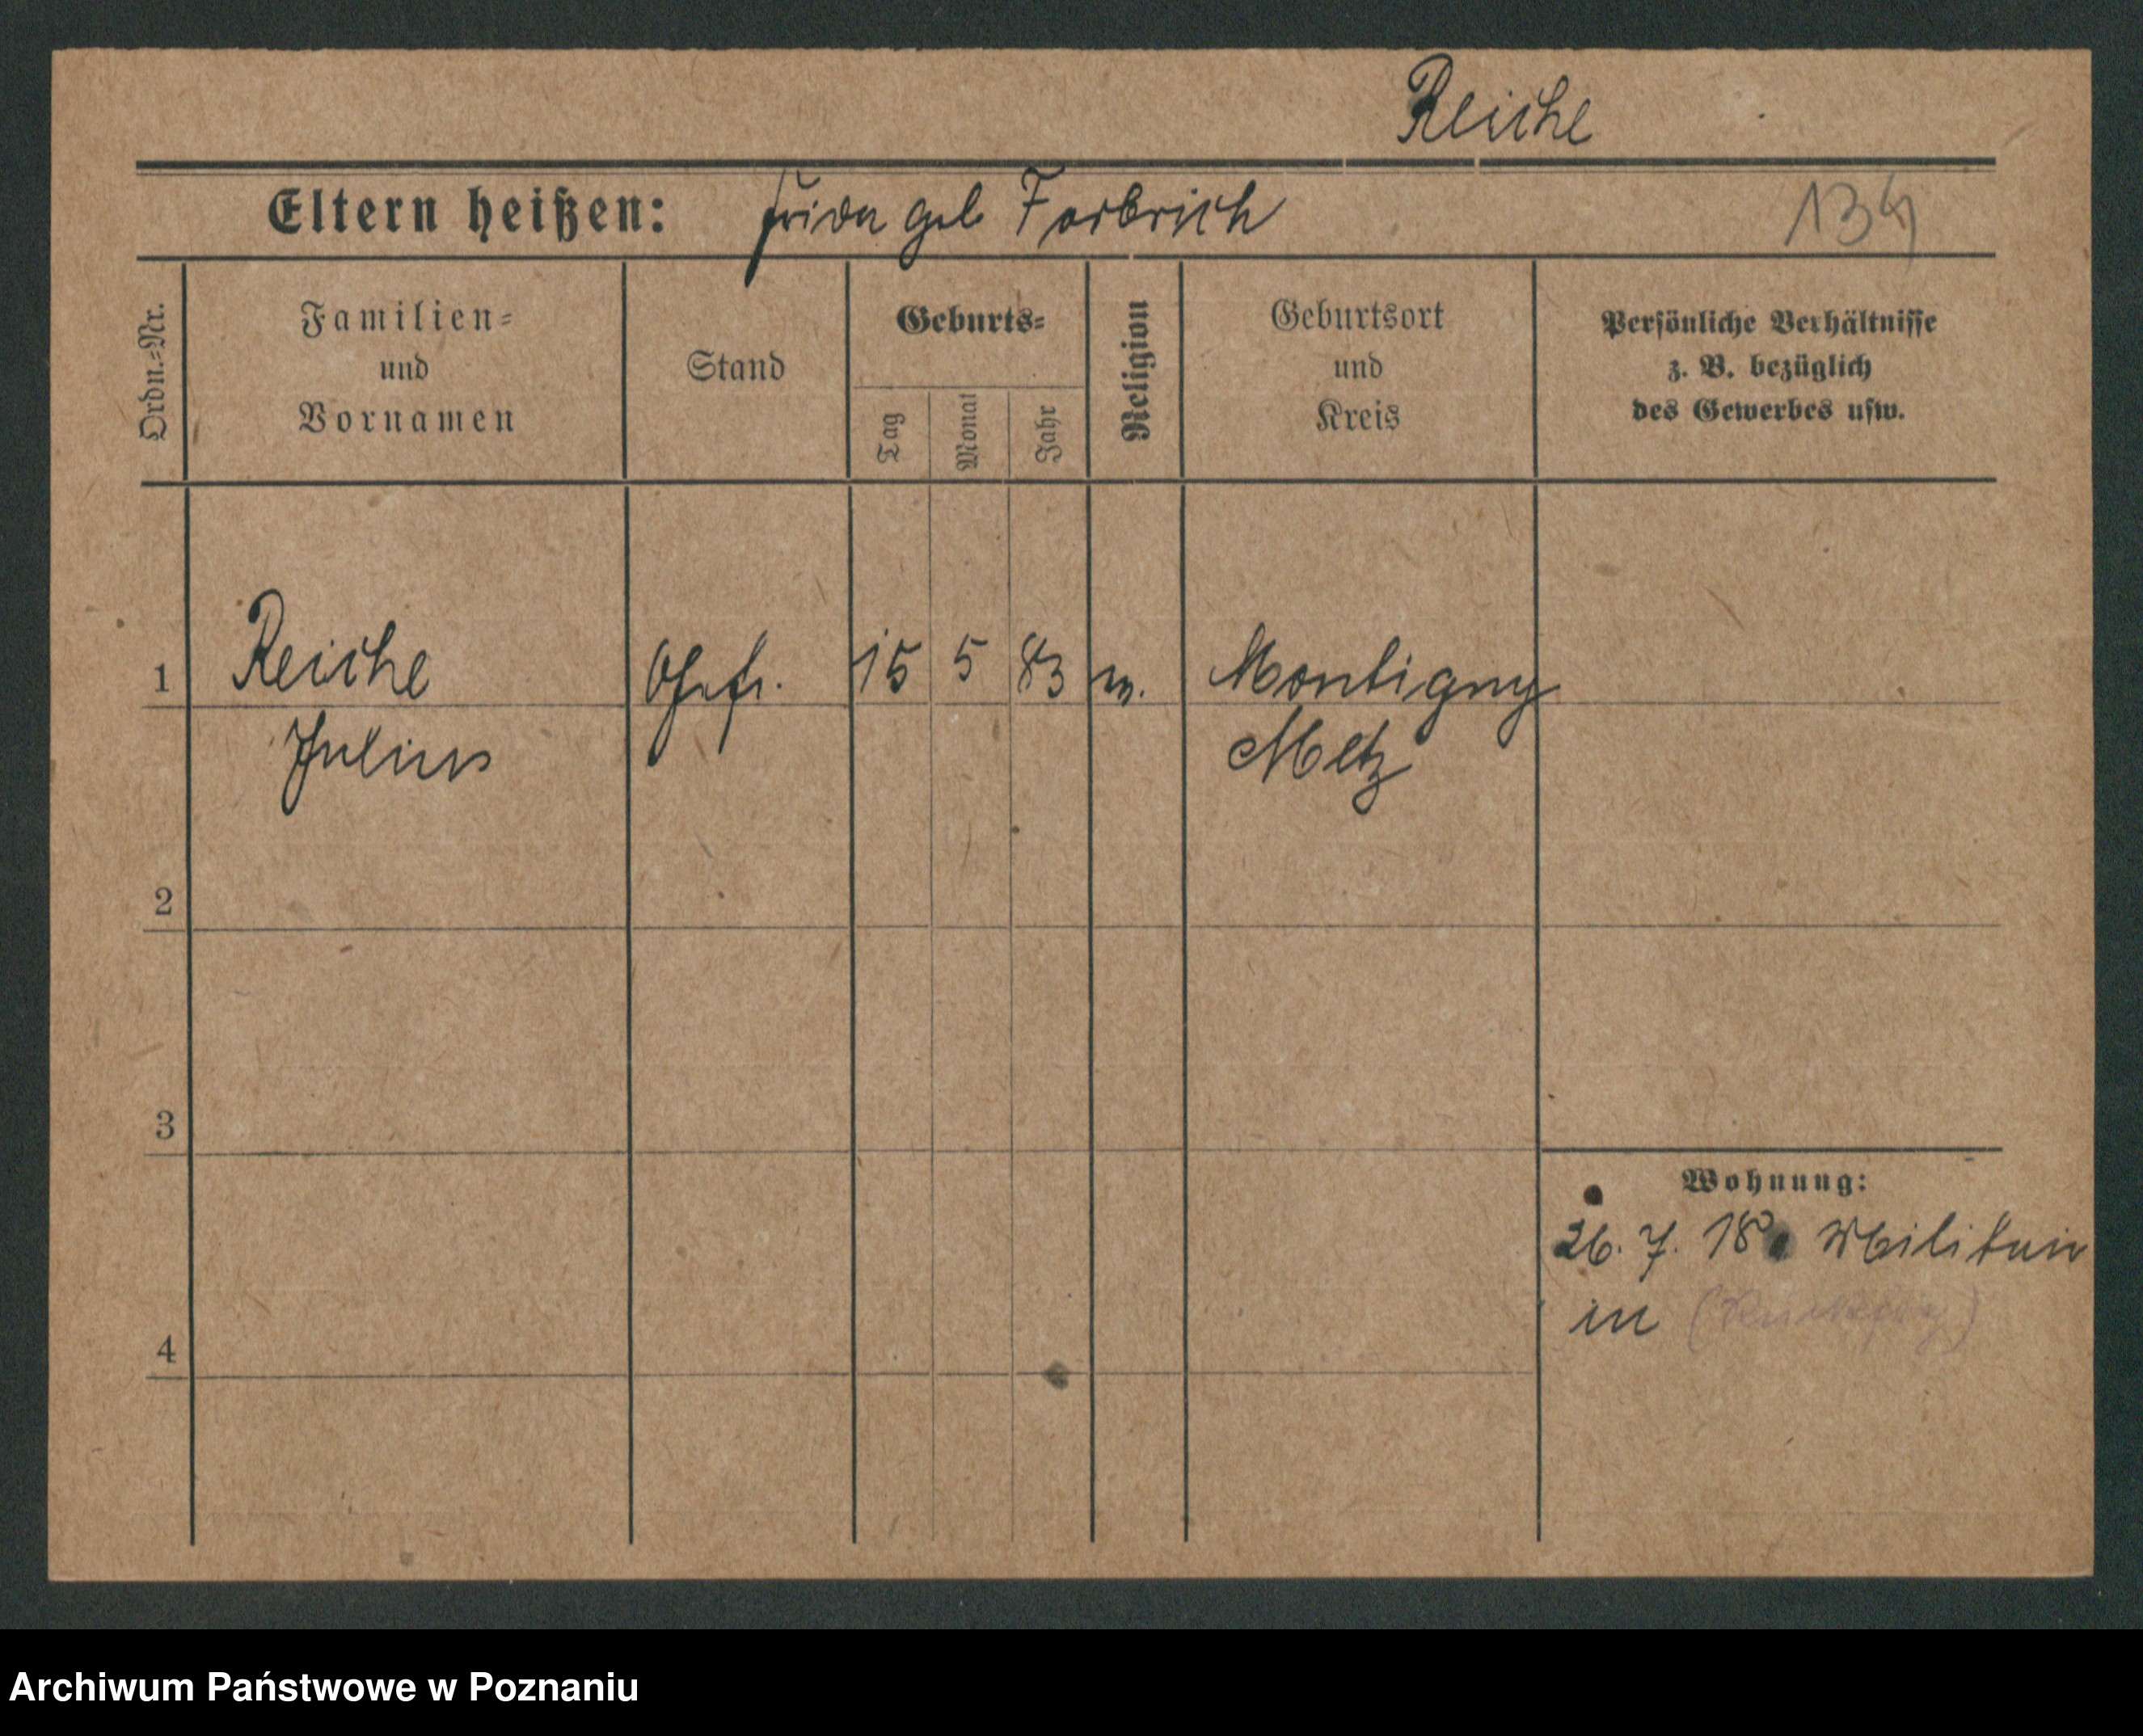 Reiche
Eltern heißen: Frida geb Forbrich 134
Ordn.=Nr.
Familien=
und
Vornamen
Stand
Geburts=
Tag
Monat
Jahr
Religion
Geburtsort
und
Kreis
Persönliche Verhältnisse
z. B. bezüglich
des Gewerbes usw.
1 Reiche 15 5 83 Montigny
Julius Metz
2
3
4
Wohnung:
26. 7. 18 Militair
in
Archiwum Państwowe w Poznaniu